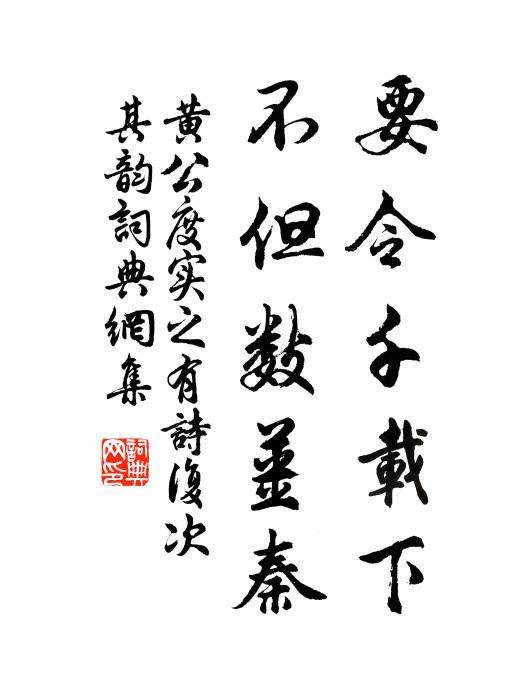 要令千載下
不但数姜秦
黄公度实之有詩復次
其韵詞典網集
詞典網印